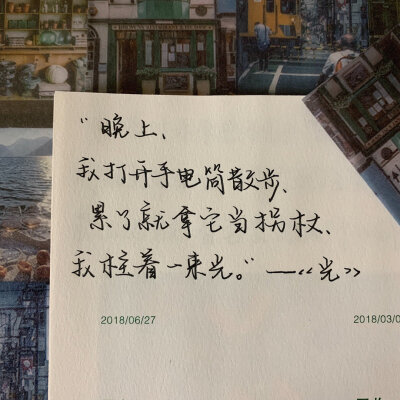 “晚上、
我打开手电筒散步、
累了就拿它当拐杖、
我柱着一束光。” ——《光》
2018/06/27
2018/03/0